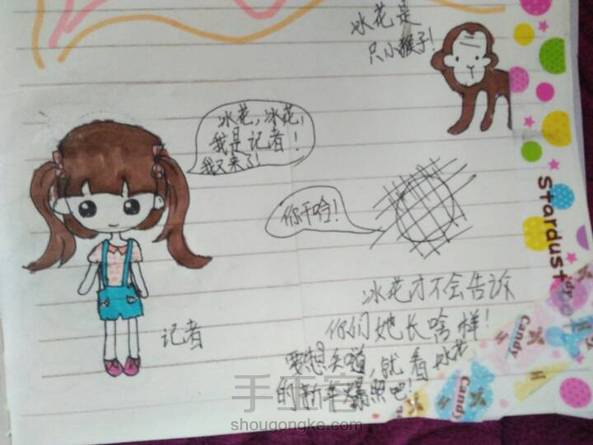 冰花是
只小猴子!
冰花,冰花,
我是记者!
我又来了!
你干啥!
记者
冰花才不会告诉
你们她长啥样!
要想知道,就看冰花
的新年爆照吧!
Stardust
Candy
Candy
Candy
手工客
shougongke.com